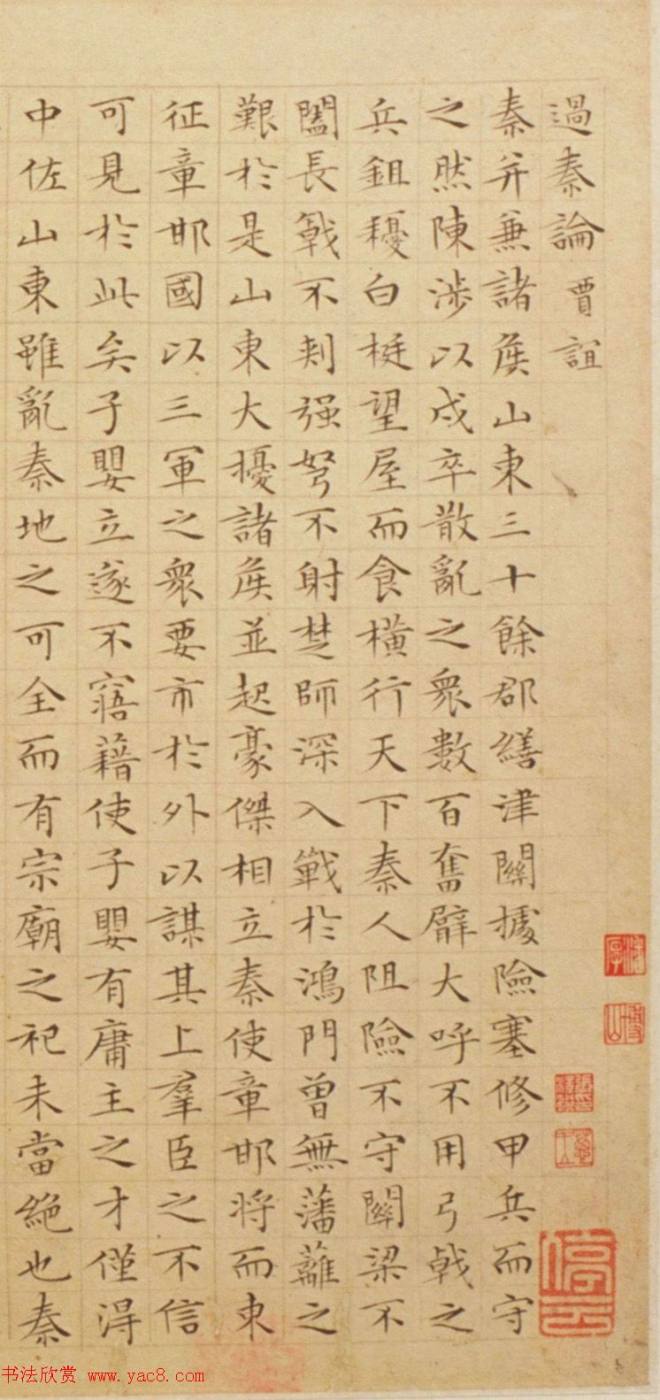 過秦論 賈誼
秦并兼諸侯山東三十餘郡繕津關據險塞修甲兵而守
之然陳涉以戍卒散亂之衆數百奮臂大呼不用弓戟之
兵鉏耰白梃望屋而食橫行天下秦人阻險不守關梁不
闔長戟不刾强弩不射楚師深入戰於鴻門曾無藩蘺之
艱於是山東大擾諸侯並起豪傑相立秦使章邯將而東
征章邯國以三軍之衆要市於外以謀其上羣臣之不信
可見於此矣子嬰立遂不寤藉使子嬰有庸主之才僅得
中佐山東雖亂秦地之可全而有宗廟之祀未當絶也秦
停雲
书法欣赏 www.yac8.com